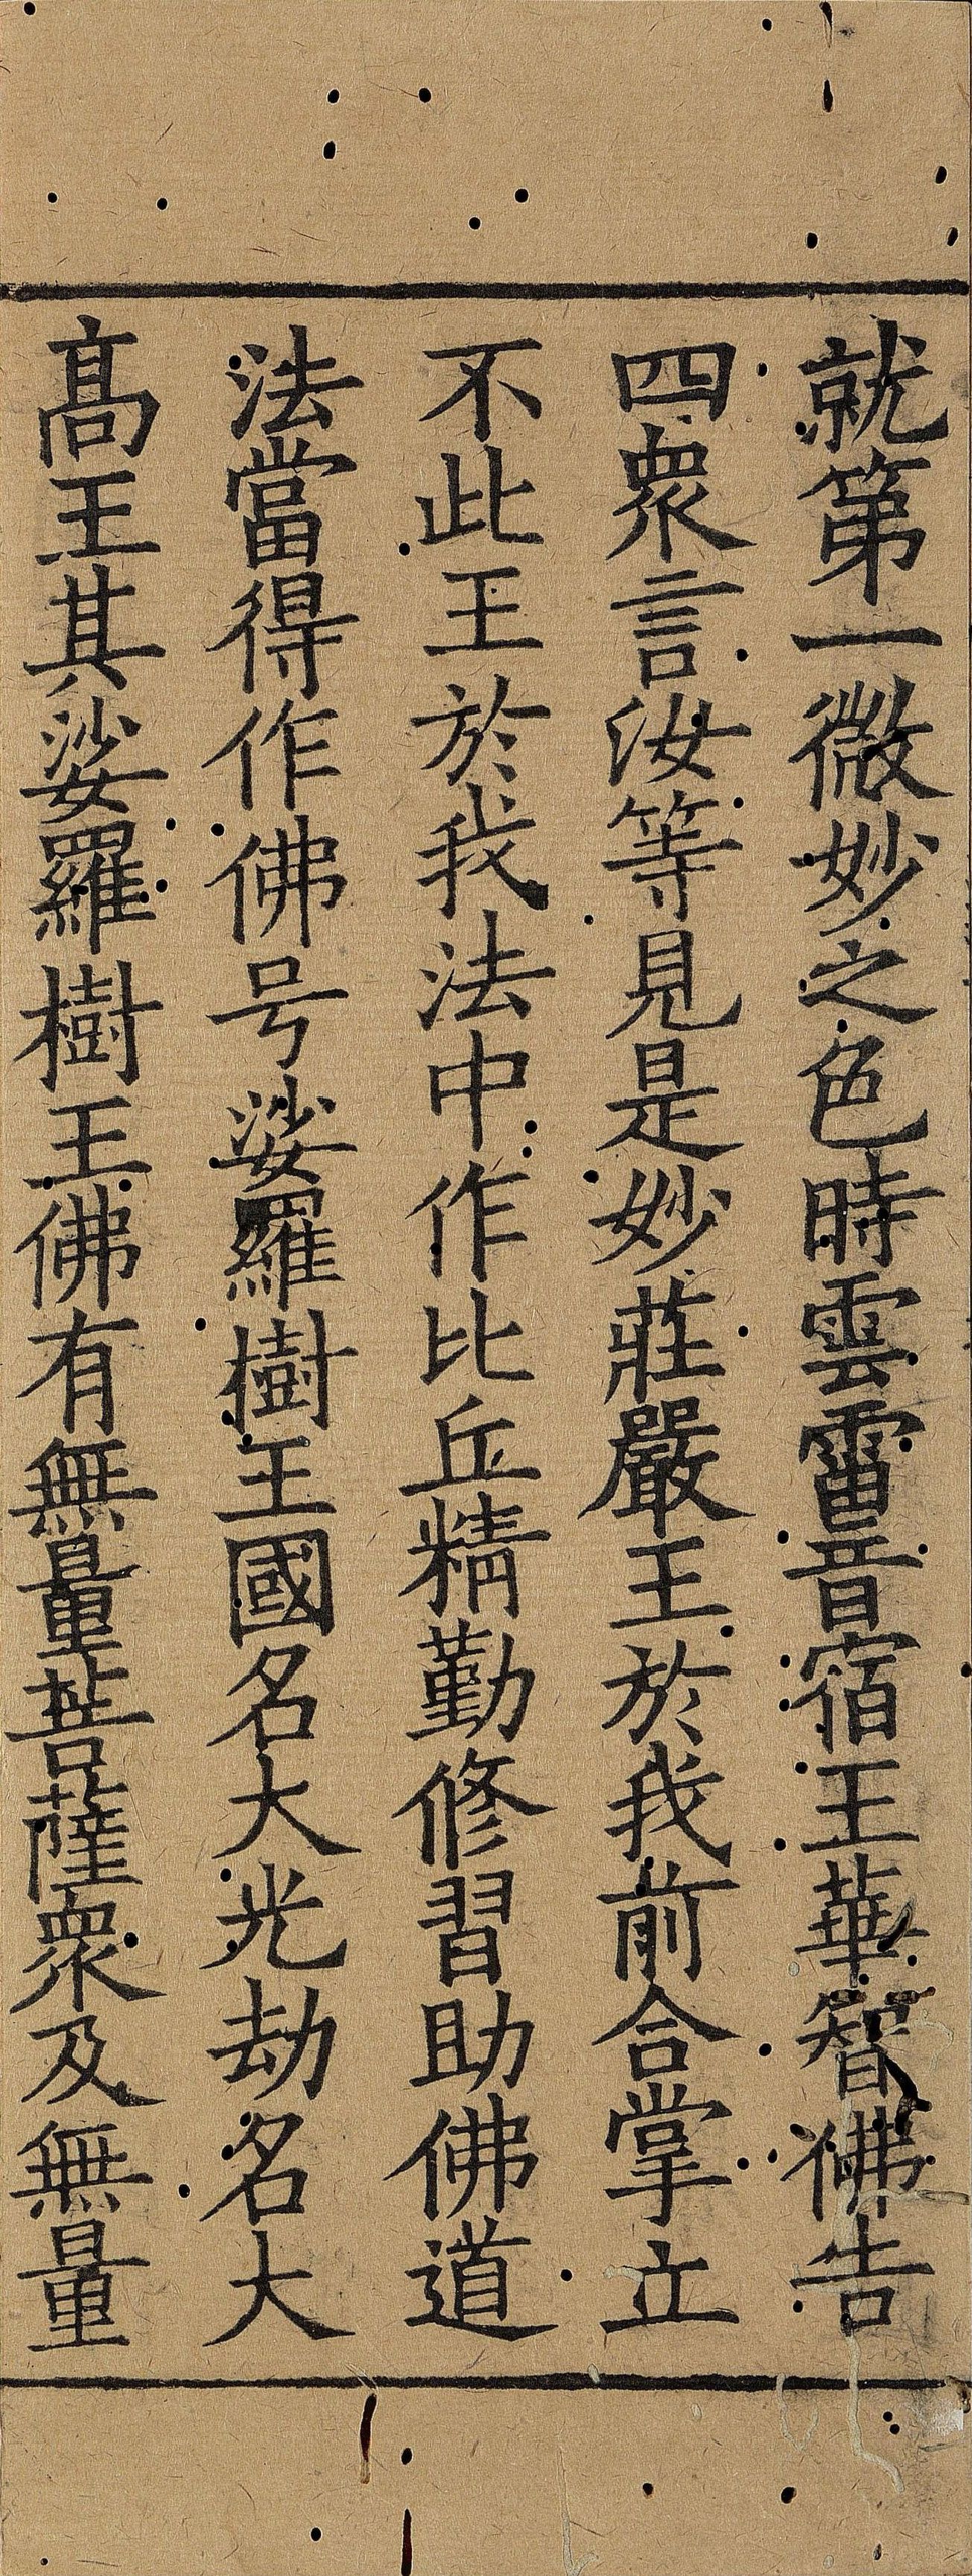 就第一微妙之色時雲雷音宿王華智佛告
四衆言汝等見是妙莊嚴王於我前合掌立
不此王於我法中作比丘精勤修習助佛道
法當得作佛号娑羅樹王國名大光劫名大
髙王其娑羅樹王佛有無量菩薩衆及無量